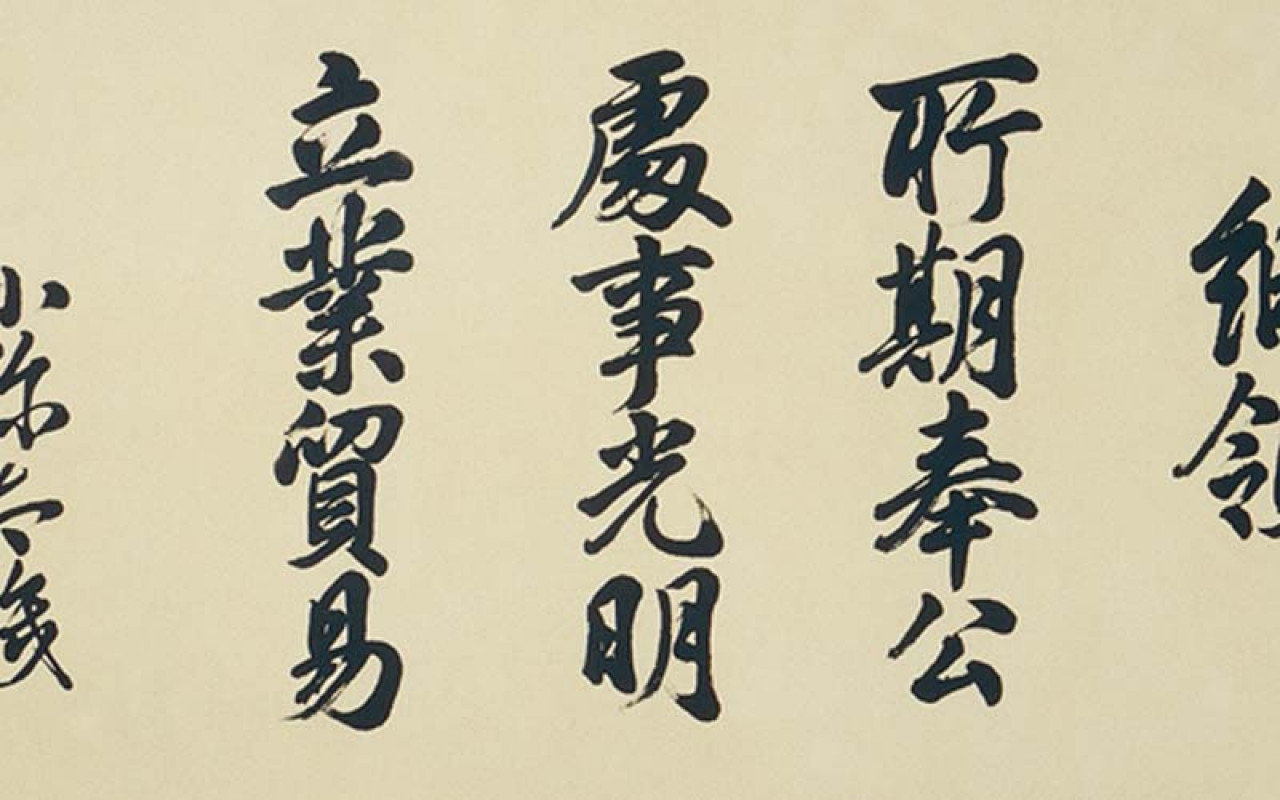 所期奉公
處事光明
立業貿易